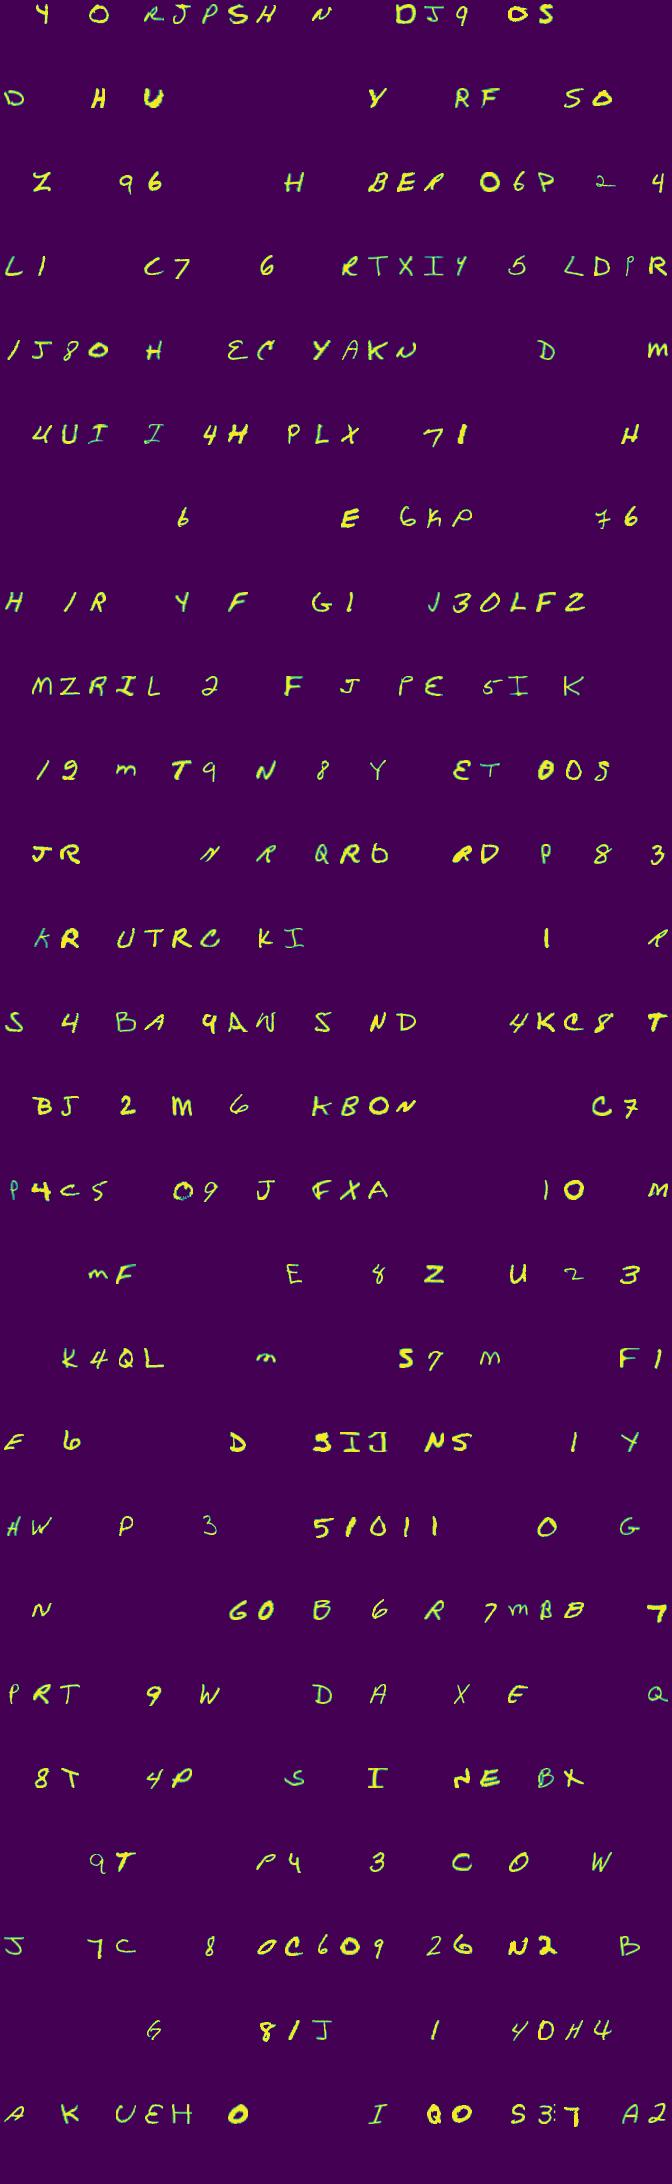 Y O RJPSH N DJ9 OS
D H U Y RF SO
Z 96 H BER 06P 2 4
L1 C7 6 RTXIY 5 LDPR
1J80 H EC YAKN D M
4UI I 4H PLX 71 H
6 E 6KP 76
H 1R Y F G1 J30LFZ
MZRIL 2 F J PE 5I K
12 M T9 N 8 Y ET 00S
JR N R QRO RD P 8 3
KR UTRC KI 1 R
S 4 BA 9AW 5 ND 4KC8 T
BJ 2 M 6 KBON C7
P4C5 09 J FXA 10 M
MF E 8 Z U 2 3
K4QL M S7 M F1
E 6 D SIJ N5 1 Y
HW P 3 51011 0 G
N G0 B 6 R 7MBB 7
PRT 9 W D A X E Q
8T 4P S I NE BX
9T P4 3 C 0 W
J 7C 8 0C609 26 N2 B
G 81J 1 40H4
A K UEH 0 I Q0 S37 A2